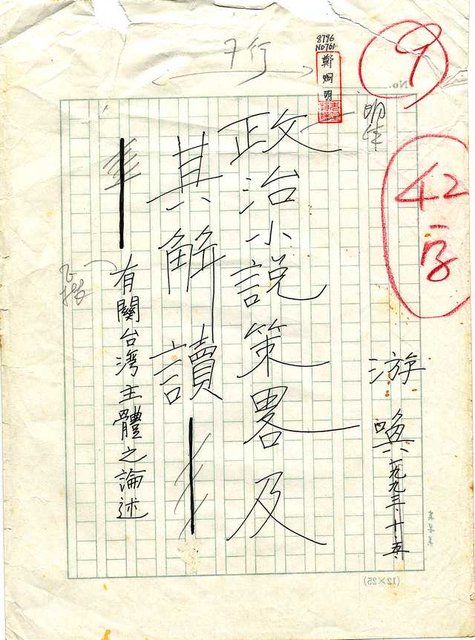 8796
NO761
鄭烱明
7行
9
42字
政治小說策畧及
其解讀
有關台灣主體之論述
游喚
一九九三、十、五、
(12×25)